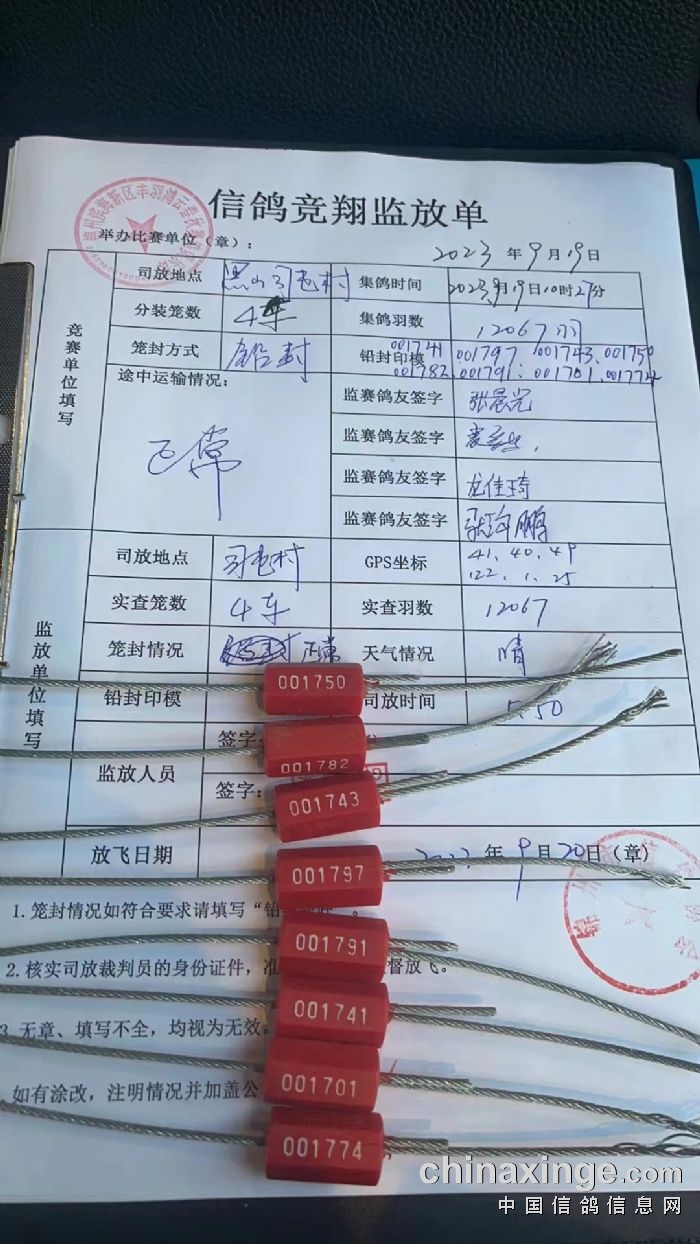 信鸽竞翔监放单
举办比赛单位(章):
2023 年 9 月 19 日
竞赛单位填写
司放地点 黑山司屯村 集鸽时间 2023年9月19日10时27分
分装笼数 4车 集鸽羽数 12067羽
笼封方式 铅封 铅封印模 001741 001797 001743、001750
001782 001791: 001701、001774
途中运输情况: 正常
监赛鸽友签字 张晨光
监赛鸽友签字
监赛鸽友签字 龙佳琦
监赛鸽友签字 鹏
监放单位填写
司放地点 司屯村 GPS坐标 41.40.49
122.1.25
实查笼数 4车 实查羽数 12067
笼封情况 正常 天气情况 晴
铅封印模 司放时间 5.50
监放人员 签字:
签字:
放飞日期 年 9 月 20 日(章)
1.笼封情况如符合要求请填写“铅
2.核实司放裁判员的身份证件,准 督放飞。
3.无章、填写不全,均视为无效。
如有涂改,注明情况并加盖公
001750
001782
001743
001797
001791
001741
001701
001774
chinaxinge.com
中国信鸽信息网